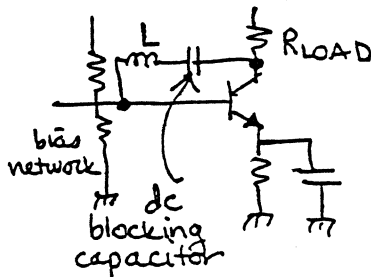 L
RLOAD
bias
network
dc
blocking
capacitor